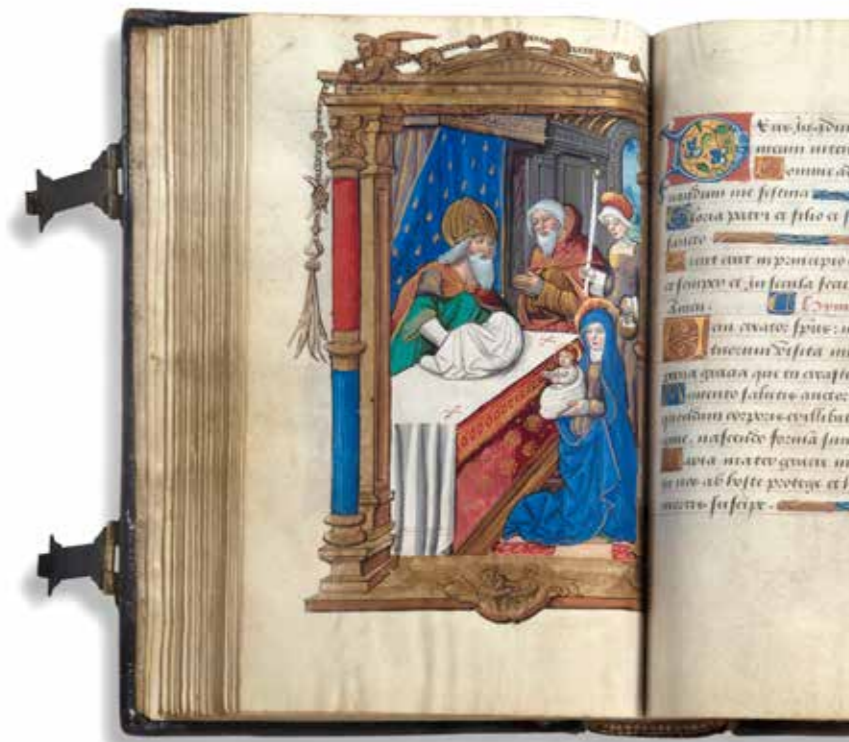 Deus in adiu
meum inten
Domine ad
iuuandum me festina
Gloria patri et filio et s
sancto
Sicut erat in principio e
et semper et in secula secu
Amen.
Veni creator spūs: m
tuorum visita
grata que tu creasti
Memento salutis auctor
quondam corporis
nascendo formā sum
Maria mater gracie m
tu nos ab hoste protege et h
mortis suscipe.